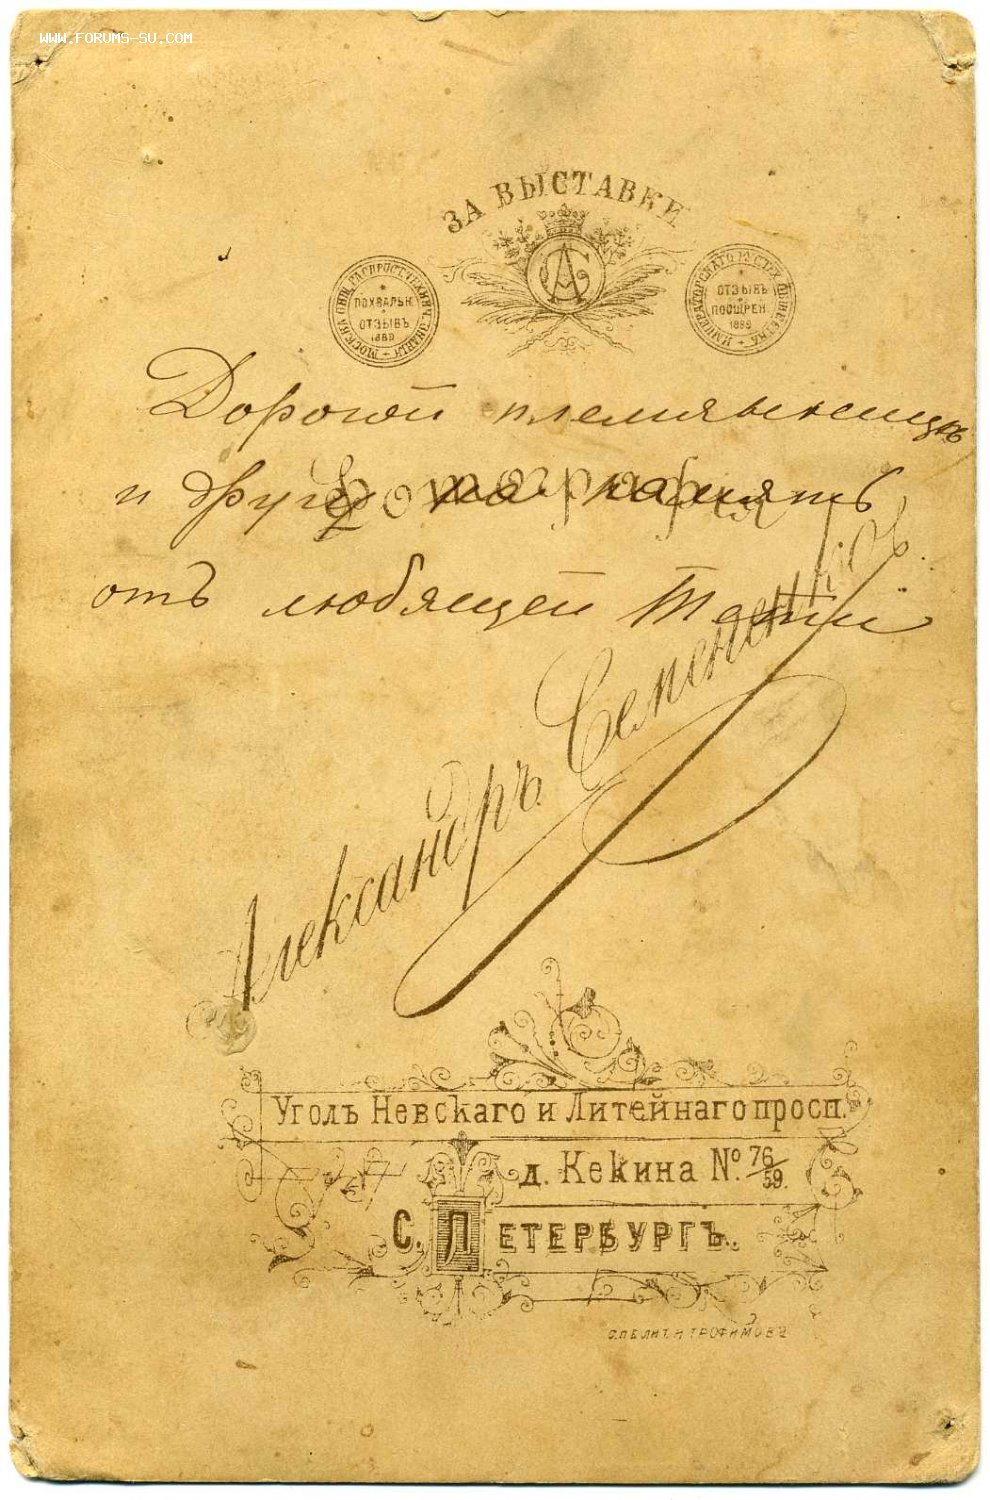 WWW.FORUMS-SU.COM
ЗА ВЫСТАВКИ
МОСКВА ОБЩ. РАСПРОСТ. ТЕХНИЧ. ЗНАНІЙ
ПОХВАЛЬН.
ОТЗЫВЪ
ИМПЕРАТОРСКАГО
ОТЗЫВЪ
ПООЩРЕН.
Дорогой племянницѣ
и другу на память
отъ любящей Тети
Фотографія
Александръ Семененковъ
Уголъ Невскаго и Литейнаго просп.
д. Кекина № 76/59.
С. ПЕТЕРБУРГЪ.
С.П.Б. ЛИТ. И ТРОФИМОВА